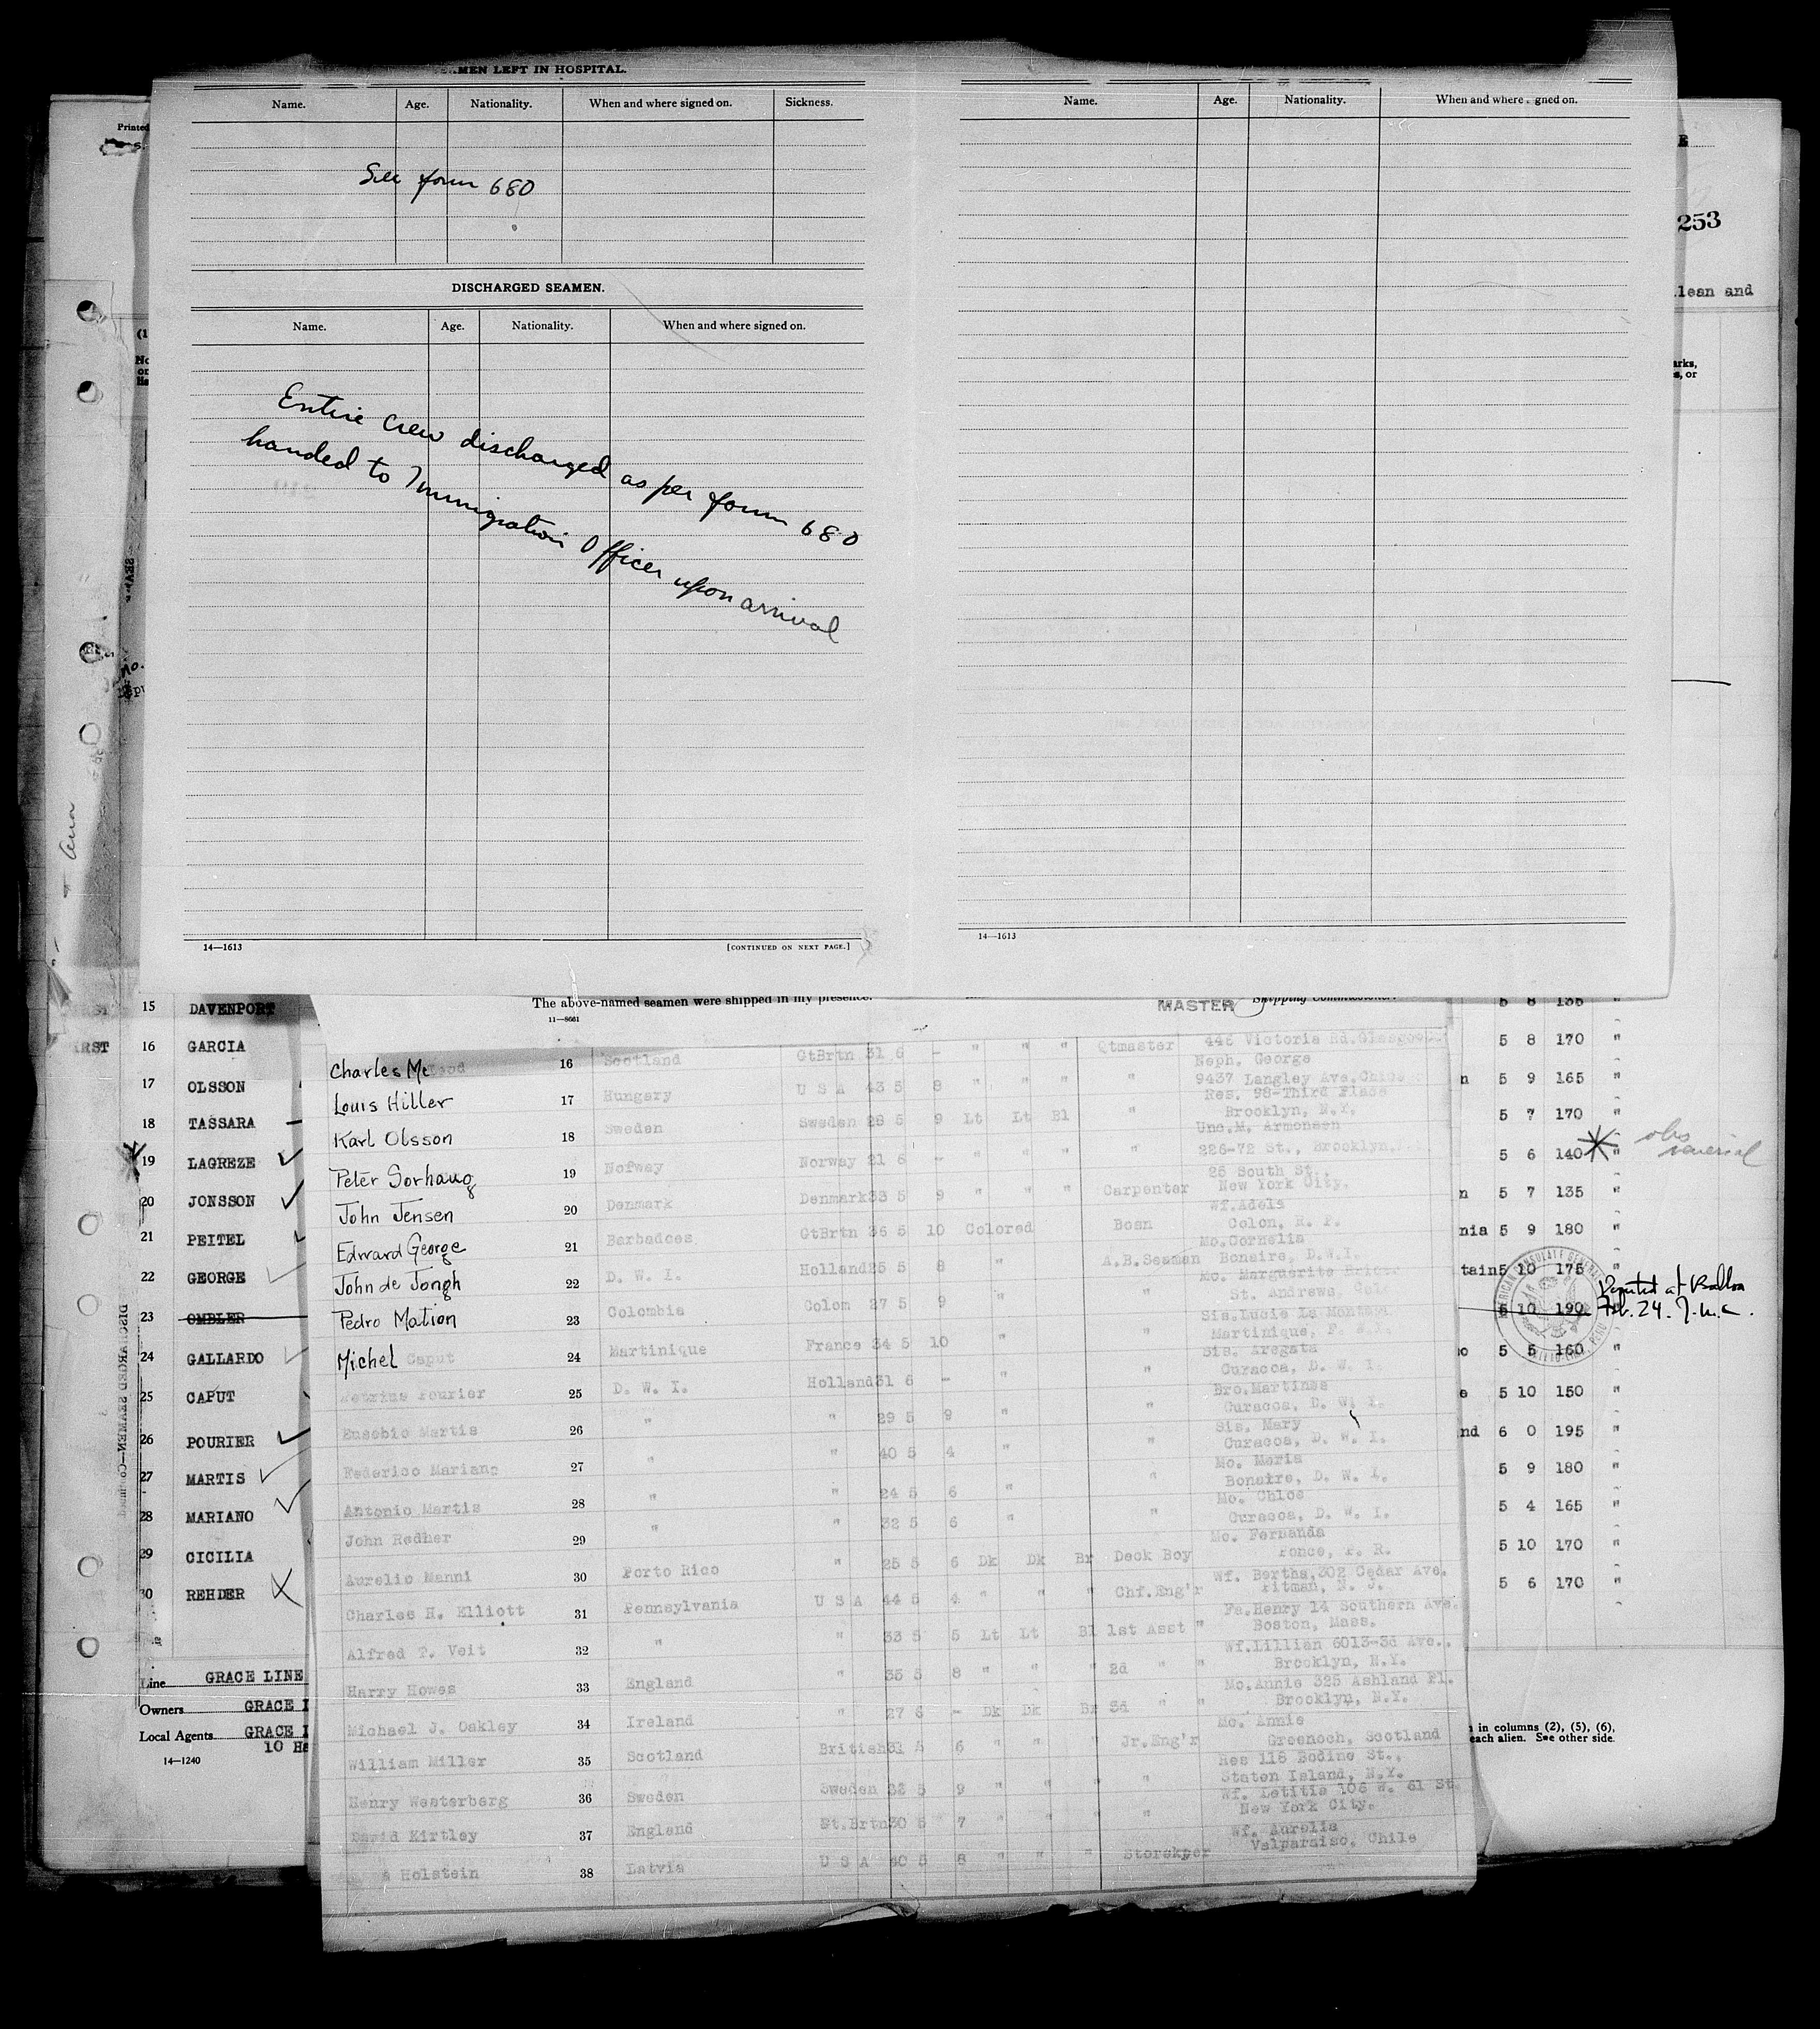 MEN LEFT IN HOSPITAL.
Name. Age. Nationality. When and where signed on. Sickness.
See form 680
DISCHARGED SEAMEN.
Name. Age. Nationality. When and where signed on.
Entire crew discharged as per form 680
handed to Immigration Officer upon arrival
14—1613 [CONTINUED ON NEXT PAGE.]
Name. Age. Nationality. When and where gned on.
14—1613
Printed
253
lean and
arks,
s, or
The above-named seamen were shipped in my presence.
11—8661
MASTER Shipping Commissioner.
15 DAVENPORT
16 GARCIA
17 OLSSON
18 TASSARA
19 LAGREZE
20 JONSSON
21 PEITEL
22 GEORGE
23 OMBLER
24 GALLARDO
25 CAPUT
26 POURIER
27 MARTIS
28 MARIANO
29 CICILIA
30 REHDER
Line GRACE LINE
Owners GRACE
Local Agents GRACE
10 Ha
14—1240
DISCHARGED SEAMEN—Continued
Charles Mc 16 Scotland GtBrtn 31 6 – " " " Qtmaster 446 Victoria Rd. Glasgow
Neph. George
Louis Hiller 17 Hungary U S A 43 5 8 " " " " 9437 Langley Ave. Chicago
Res. 98-Third Place
Karl Olsson 18 Sweden Sweden 28 5 9 Lt Lt Bl " Brooklyn, N.Y.
Unc.M. Armonsen
Peter Sorhaug 19 Norway Norway 21 6 – " " " " 226-72 St., Brooklyn,
25 South St.,
John Jensen 20 Denmark Denmark 33 5 9 " " " Carpenter New York City.
Wf. Adela
Edward George 21 Barbadoes GtBrtn 36 5 10 Colored Bosn Colon, R. P.
Mo. Cornelia
John de Jongh 22 D. W. I. Holland 25 5 8 " A.B. Seaman Bonaire, D.W.I.
Mo. Marguerite
Pedro Mation 23 Colombia Colom 27 5 9 " " St. Andrews, Col.
Sis. Lucie La Montagne
Michel Caput 24 Martinique France 34 5 10 " Martinique, F. W. I.
Sis. Aregata
Petrius Pourier 25 D. W. I. Holland 31 6 – " " Curacoa, D. W. I.
Bro. Martines
Eusebio Martis 26 " " 29 5 9 " " Curacoa, D. W. I.
Sis. Mary
Federico Mariano 27 " " 40 5 4 " " Curacoa, D. W. I.
Mo. Maria
Antonio Martis 28 " " 24 5 6 " " Bonaire, D. W. I.
Mo. Chloe
John Redher 29 " " 32 5 6 " " Curacoa, D. W. I.
Mo. Fernanda
Aurelio Manni 30 Porto Rico " 25 5 6 Dk Dk Br Deck Boy Ponce, P. R.
Wf. Bertha, 302 Cedar Ave.
Charles H. Elliott 31 Pennsylvania U S A 44 5 4 " " " Chf. Eng'r Pitman, N. J.
Fa. Henry 14 Southern Ave.
Alfred T. Veit 32 " " 33 5 5 Lt Lt Bl 1st Asst " Boston, Mass.
Wf. Lillian 6013-3d Ave.,
Harry Howes 33 England " 35 5 8 " " " 2d " " Brooklyn, N.Y.
Mo. Annie 325 Ashland Pl.
Michael J. Oakley 34 Ireland " 27 6 – Dk Dk Br 3d " " Brooklyn, N.Y.
Mo. Annie
William Miller 35 Scotland British 31 5 6 " " " Jr. Eng'r Greenock, Scotland
Res 118 Bodine St.,
Henry Westerberg 36 Sweden Sweden 32 5 9 " " " " Staten Island, N.Y.
Wf. Letitia 106 W. 61 St.
David Kirtley 37 England Gt.Brtn 30 5 7 " " " " New York City.
Wf. Aurelia
Holstein 38 Latvia U S A 40 5 8 " " " Storekper Valparaiso, Chile
5 8 135 "
5 8 170 "
n 5 9 165 "
5 7 170 "
5 6 140 "
obs venerial
n 5 7 135 "
nia 5 9 180 "
tain 5 10 175 "
5 10 190
Deported at Balboa
Feb. 24. J.M.C.
AMERICAN CONSULATE GENERAL
CALLAO-LIMA, PERU
o 5 5 160 "
e 5 10 150 "
nd 6 0 195 "
5 9 180 "
5 4 165 "
5 10 170 "
5 6 170 "
in columns (2), (5), (6),
each alien. See other side.